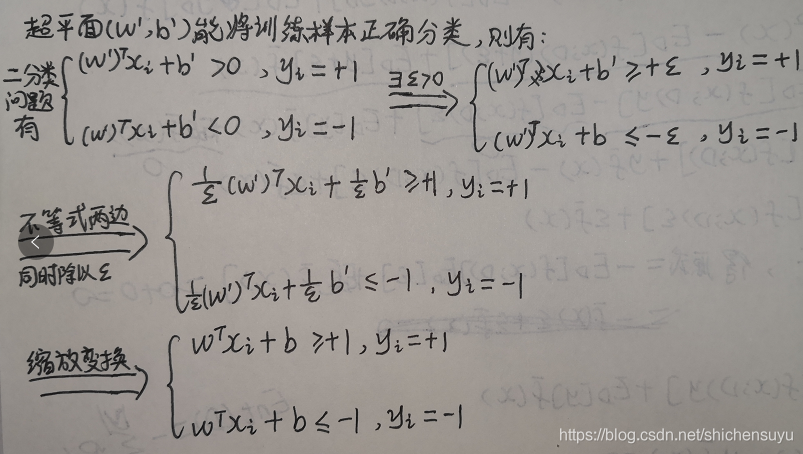 超平面(w',b')能将训练样本正确分类,则有:
二分类问题有 { (w')ᵀxᵢ+b' >0 , yᵢ=+1 ∃ε>0 ⟹ { (w')ᵀxᵢ+b' ≥+ε , yᵢ=+1
(w)ᵀxᵢ+b' <0 , yᵢ=-1 (w')ᵀxᵢ+b ≤-ε , yᵢ=-1
不等式两边同时除以ε ⟹ { 1/ε (w')ᵀxᵢ+1/ε b' ≥+1 , yᵢ=+1
1/ε(w')ᵀxᵢ+1/ε b' ≤-1 , yᵢ=-1
缩放变换 ⟹ { wᵀxᵢ+b ≥+1 , yᵢ=+1
wᵀxᵢ+b ≤-1 , yᵢ=-1
https://blog.csdn.net/shichensuyu